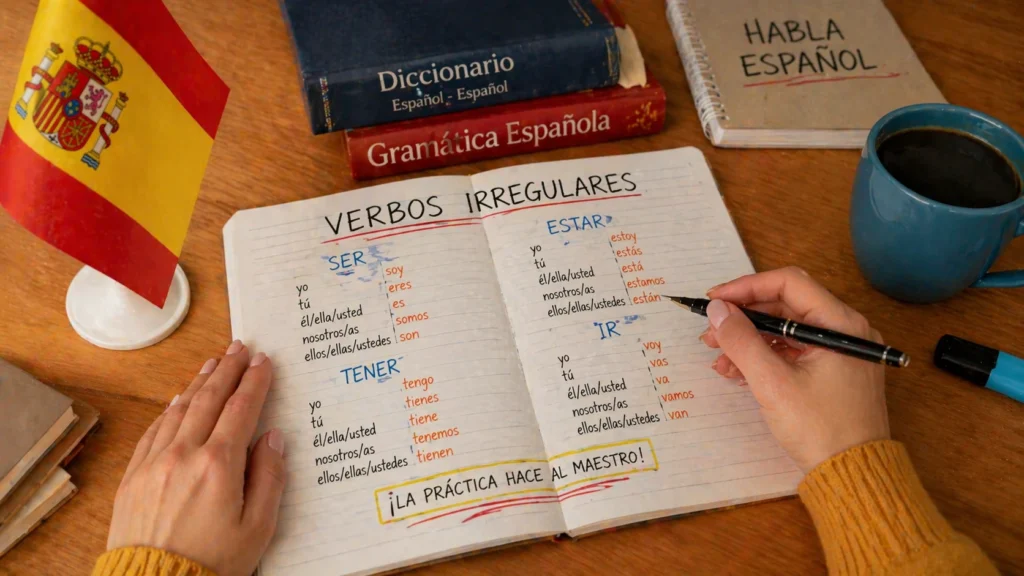 Diccionario
Español - Español
Gramática Española
HABLA
ESPAÑOL
VERBOS IRREGULARES
SER
yo soy
tú eres
él/ella/usted es
nosotros/as somos
ellos/ellas/ustedes son
TENER
yo tengo
tú tienes
él/ella/usted tiene
nosotros/as tenemos
ellos/ellas/ustedes tienen
ESTAR
yo estoy
tú estás
él/ella/usted está
nosotros/as estamos
ellos/ellas/ustedes están
IR
yo voy
tú vas
él/ella/usted va
nosotros/as vamos
ellos/ellas/ustedes van
¡LA PRÁCTICA HACE AL MAESTRO!